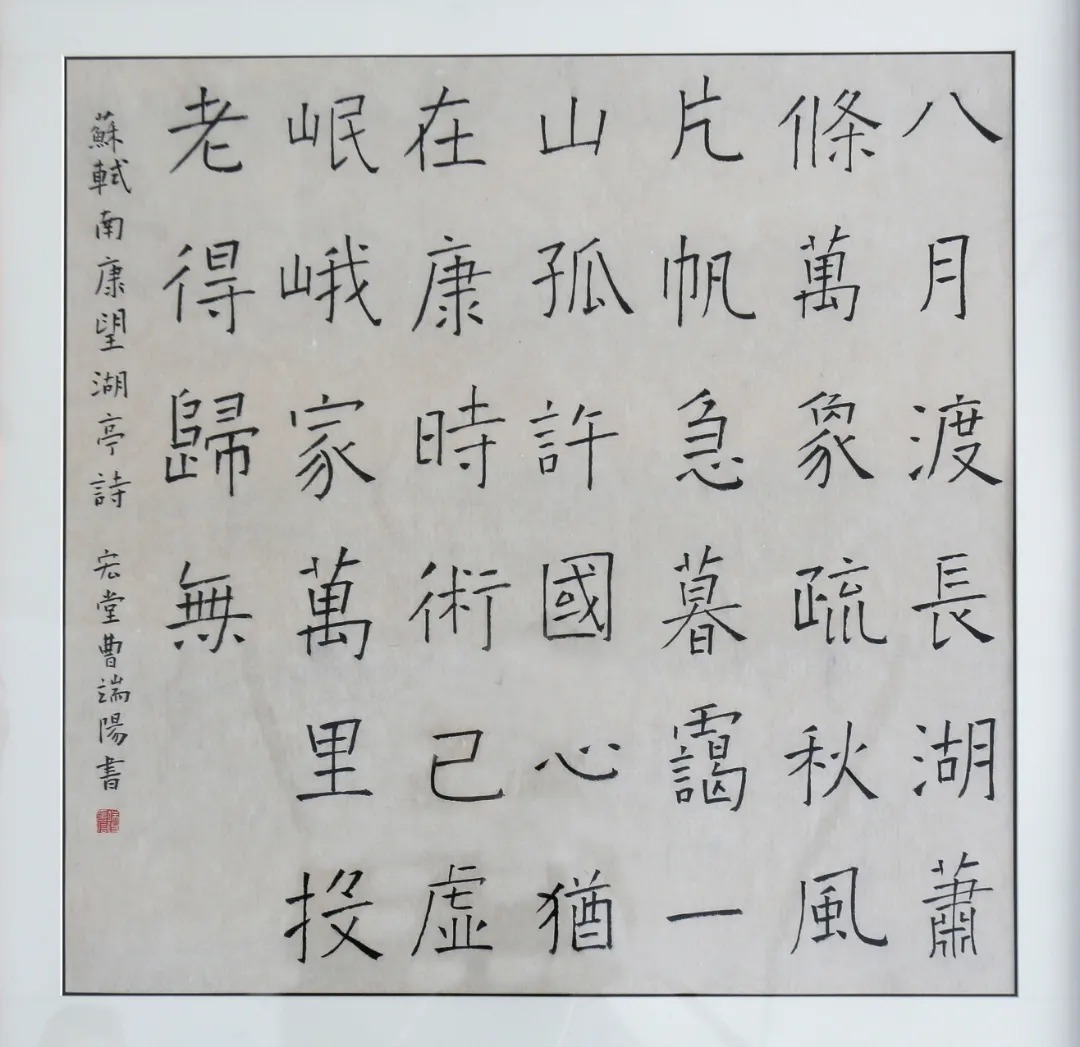 八月渡長湖蕭
條萬象疏秋風
片帆急暮靄一
山孤許國心猶
在康時術已虛
岷峨家萬里投
老得歸無
蘇軾南康望湖亭詩 宏堂曹端陽書